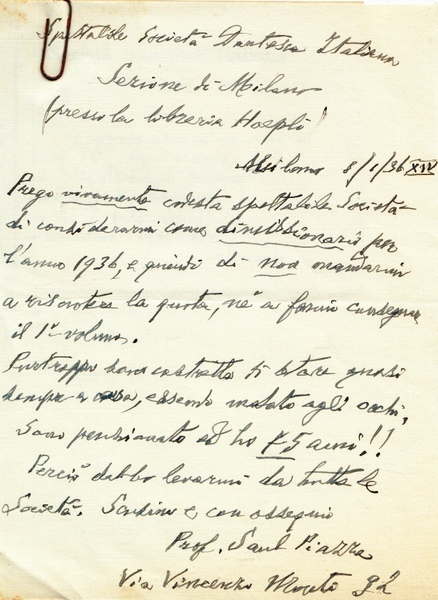 Spettabile Società Dantesca Italiana
Sezione di Milano
(presso la libreria Hoepli)
Milano 8/1/36 XIV
Prego vivamente codesta spettabile Società
di considerarmi come dimissionario per
l'anno 1936, e quindi di non mandarmi
a riscuotere la quota, nè a farmi consegnare
il 1º volume.
Purtroppo sono costretto di stare quasi
sempre a casa, essendo malato agli occhi.
Sono pensionato ed ho 75 anni!!
Perciò debbo levarmi da tutte le
Società. Scusino e con ossequio
Prof. Saul Piazza
Via Vincenzo Monti 92